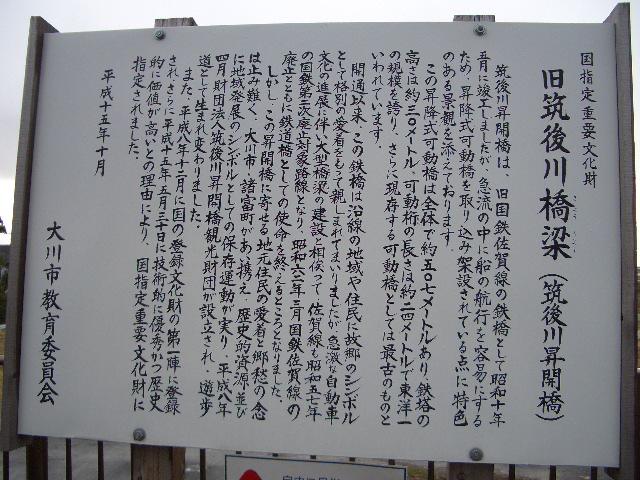 国指定重要文化財
旧筑後川橋梁(筑後川昇開橋)
筑後川昇開橋は、旧国鉄佐賀線の鉄橋として昭和十年
五月に竣工しましたが、急流の中に船の航行を容易にする
ため、昇降式可動橋を取り込み架設されている点に、特色
のある景観を添えております。
この昇降式可動橋は全体で約五〇七メートルあり、鉄塔の
高さは約三〇メートル、可動桁の長さは約二四メートルで東洋一
の規模を誇り、さらに現存する可動橋としては最古のものと
いわれています。
開通以来、この鉄橋は沿線の地域や住民に故郷のシンボル
として格別の愛着をもって親しまれてまいりましたが、急激な自動車
文化の進展に伴い大型橋梁の建設と相俟って、佐賀線も昭和五七年
の国鉄第二次廃止対象路線となり、昭和六二年三月国鉄佐賀線の
廃止とともに鉄道橋としての使命を終えるところとなりました。
しかし、この昇開橋に寄せる地元住民の愛着と郷愁の念
は止み難く、大川市・諸富町があい携え、歴史的資源、並び
に地域発展のシンボルとしての保存運動が実り、平成八年
四月財団法人筑後川昇開橋観光財団が設立され、遊歩
道として生まれ変わりました。
また、平成八年十二月に国の登録文化財の第一陣に登録
され、さらに平成十五年五月三十日に技術的に優秀かつ歴史
的に価値が高いとの理由により、国指定重要文化財に
指定されました。
平成十五年十月
大川市教育委員会